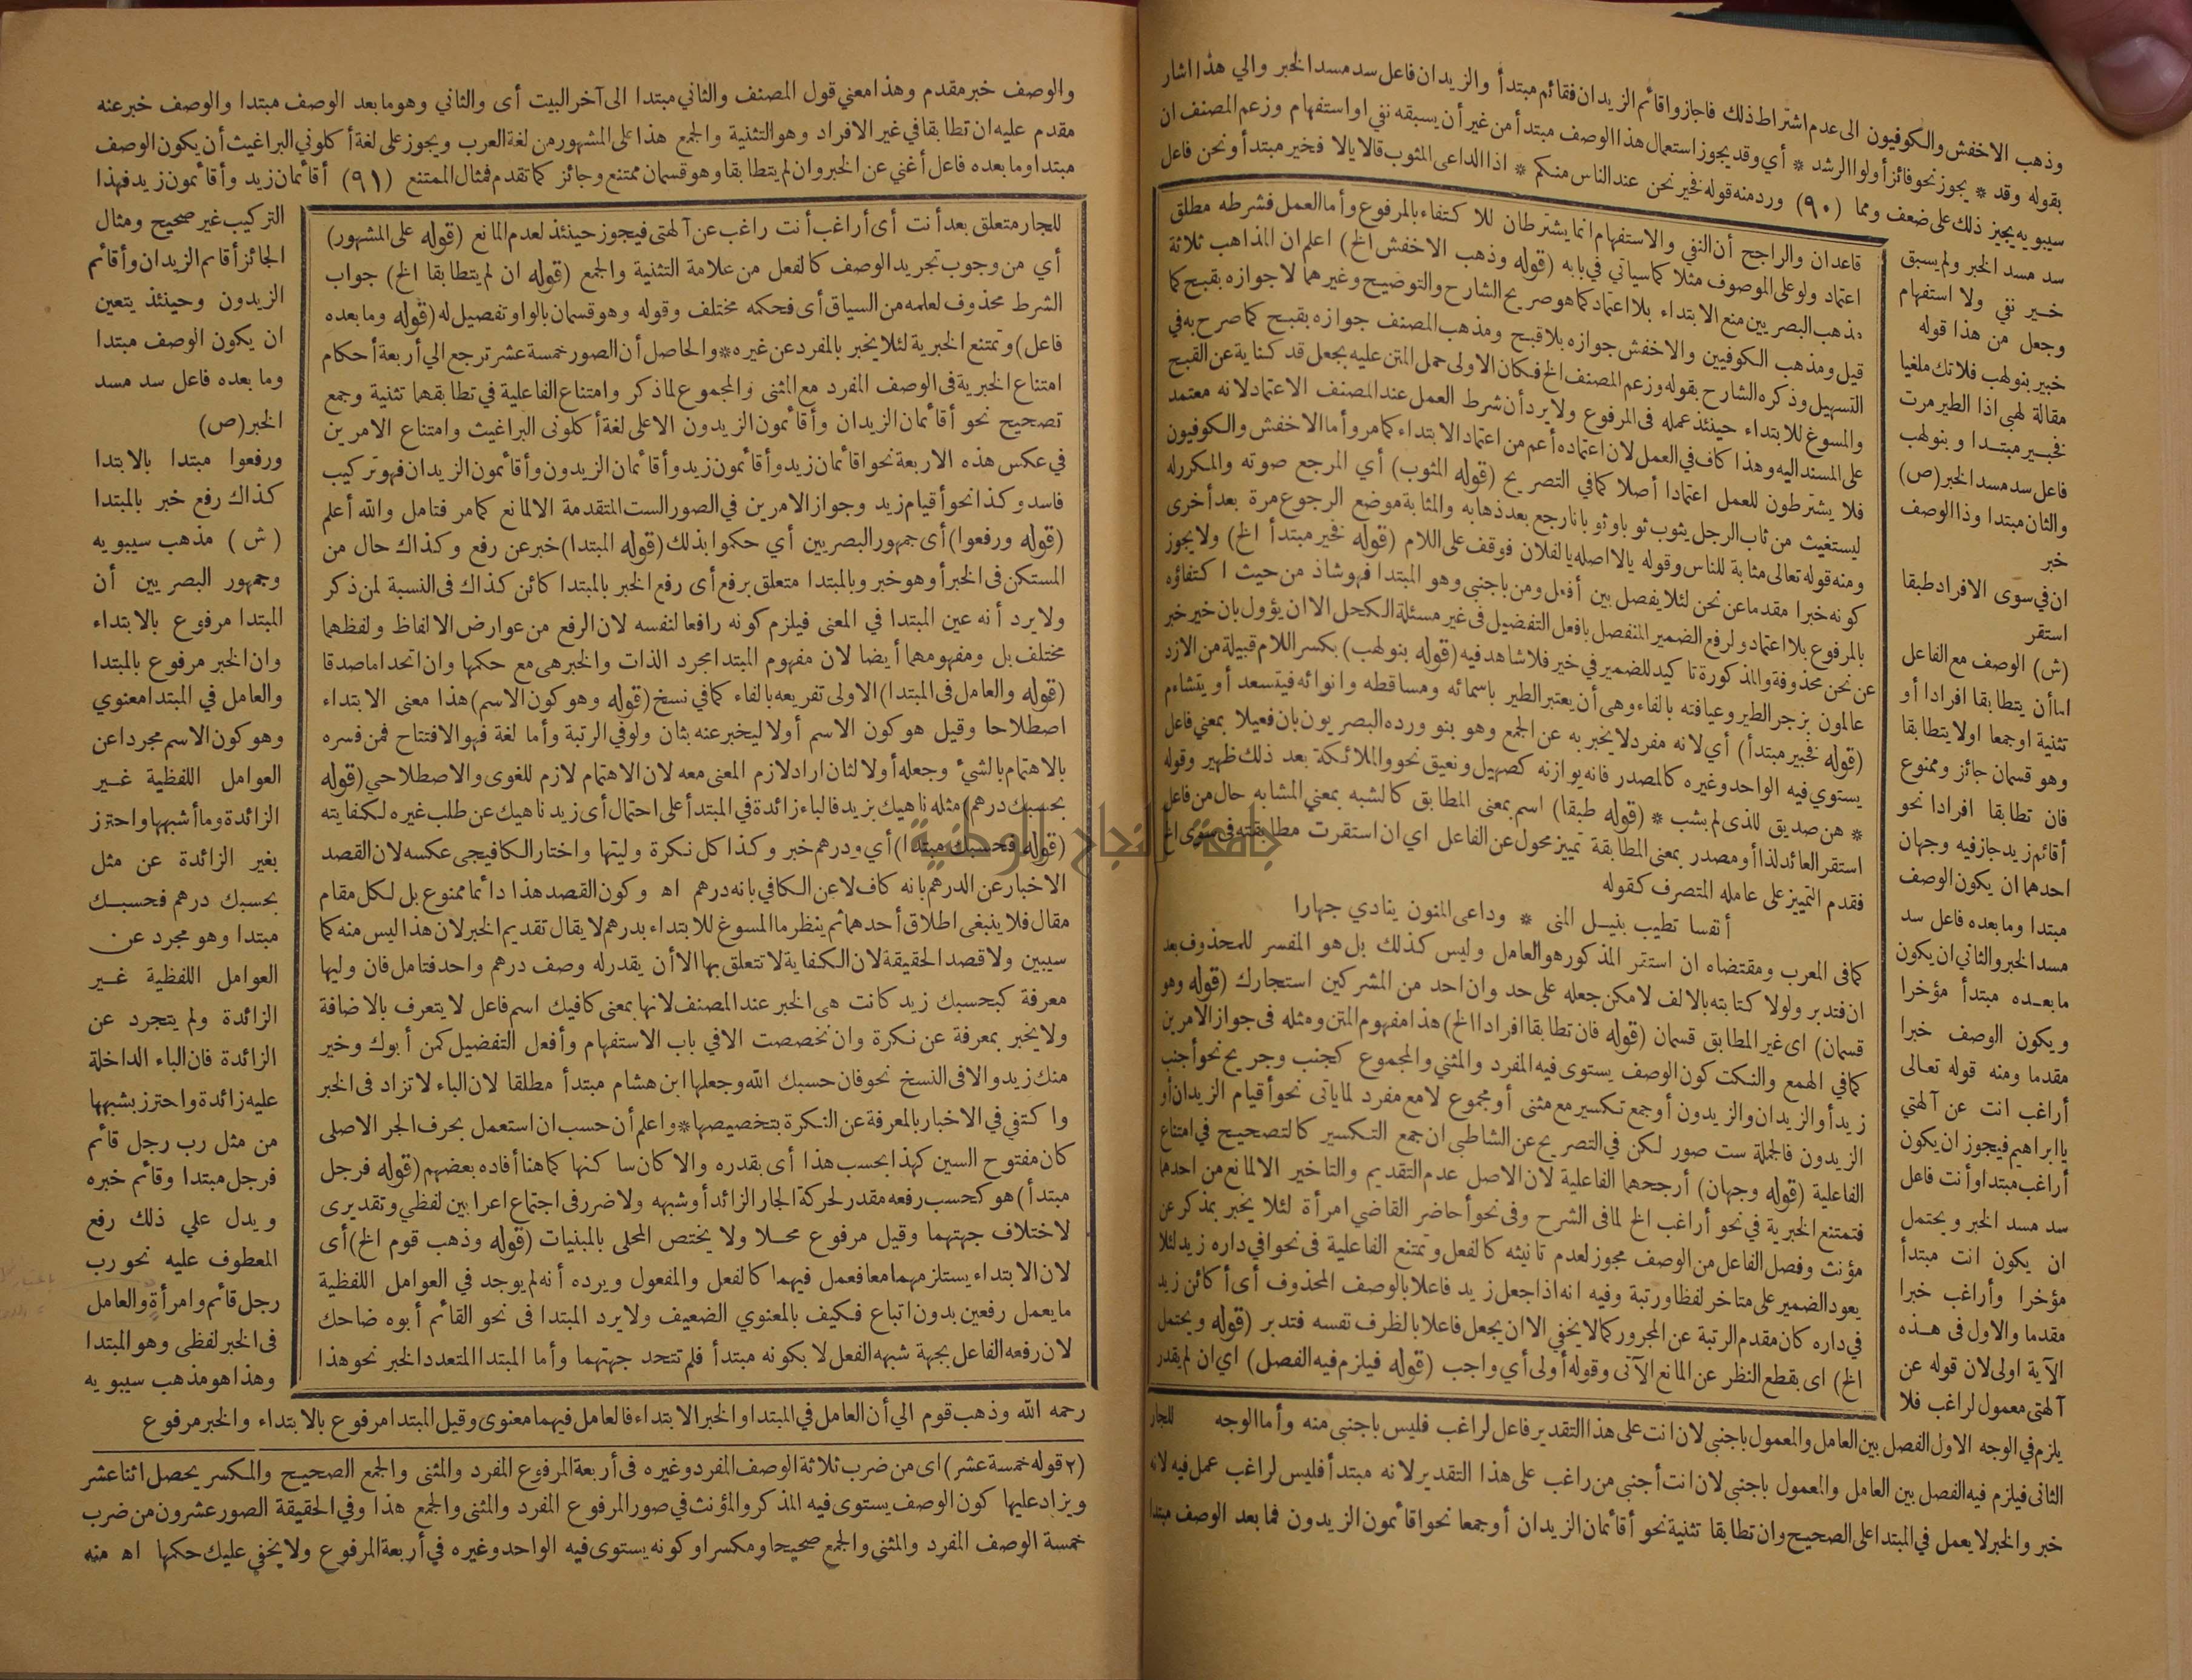 وذهب الاخفش والكوفيون الى عدم اشتراط ذلك فاجازوا قائم الزيدان فقائم مبتدأ والزيدان فاعل سد مسد الخبر والي هذا اشار
بقوله وقد * يجوز نحو فائز أولوا الرشد * أي وقد يجوز استعمال هذا الوصف مبتدأ من غير أن يسبقه نفي او استفهام وزعم المصنف ان
سيبويه يجيز ذلك على ضعف ومما (٩٠) ورد منه قوله فخير نحن عند الناس منكم * اذا الداعى المثوب قال يالا فخير مبتدأ ونحن فاعل
سد مسد الخبر ولم يسبق
خير نفي ولا استفهام
وجعل من هذا قوله
خبير بنو لهب فلا تك ملغيا
مقالة لهبي اذا الطير مرت
فخبير مبتدا وبنو لهب
فاعل سد مسد الخبر (ص)
والثان مبتدا وذا الوصف
خبر
ان في سوى الافراد طبقا
استقر
(ش) الوصف مع الفاعل
اما أن يتطابقا افرادا أو
تثنية او جمعا اولا يتطابقا
وهو قسمان جائز وممنوع
فان تطابقا افرادا نحو
أقائم زيد جاز فيه وجهان
احدهما ان يكون الوصف
مبتدا وما بعده فاعل سد
مسد الخبر والثاني ان يكون
ما بعده مبتدأ مؤخرا
ويكون الوصف خبرا
مقدما ومنه قوله تعالى
أراغب انت عن آلهتي
يا ابراهيم فيجوز ان يكون
أراغب مبتدا وأنت فاعل
سد مسد الخبر ويحتمل
ان يكون انت مبتدأ
مؤخرا وأراغب خبرا
مقدما والاول فى هذه
الآية اولى لان قوله عن
آلهتى معمول لراغب فلا
قاعدان والراجح أن النفي والاستفهام انما يشترطان للاكتفاء بالمرفوع وأما العمل فشرطه مطلق
اعتماد ولو على الموصوف مثلا كما سياتي في بابه (قوله وذهب الاخفش الخ) اعلم ان المذاهب ثلاثة
مذهب البصريين منع الابتداء بلا اعتماد كما هو صريح الشارح والتوضيح وغيرهما لا جوازه بقبح كما
قيل ومذهب الكوفيين والاخفش جوازه بلا قبح ومذهب المصنف جوازه بقبح كما صرح به في
التسهيل وذكره الشارح بقوله وزعم المصنف الخ فكان الاولى حمل المتن عليه بجعل قد كناية عن القبح
والمسوغ للابتداء حينئذ عمله فى المرفوع ولا يرد أن شرط العمل عند المصنف الاعتماد لانه معتمد
على المسند اليه وهذا كاف في العمل لان اعتماده أعم من اعتماد الابتداء كما مر وأما الاخفش والكوفيون
فلا يشترطون للعمل اعتمادا أصلا كما في التصريح (قوله المثوب) أي المرجع صوته والمكرر له
ليستغيث من ثاب الرجل يثوب ثوبا وثوبانا رجع بعد ذهابه والمثابة موضع الرجوع مرة بعد أخرى
ومنه قوله تعالى مثابة للناس وقوله يالا اصله يا لفلان فوقف على اللام (قوله فخير مبتدأ الخ) ولا يجوز
كونه خبرا مقدما عن نحن لئلا يفصل بين أفعل ومن باجنبي وهو المبتدا فهو شاذ من حيث اكتفاؤه
بالمرفوع بلا اعتماد ولرفع الضمير المنفصل بافعل التفضيل فى غير مسئلة الكحل الا ان يؤول بان خير خبر
عن نحن محذوفة والمذكورة تاكيد للضمير في خير فلا شاهد فيه (قوله بنو لهب) بكسر اللام قبيلة من الازد
عالمون بزجر الطير وعيافته بالفاء وهى أن يعتبر الطير باسمائه ومساقطه وانوائه فيتسعد أو يتشاءم
(قوله فخبير مبتدأ) أي لانه مفرد لا يخبر به عن الجمع وهو بنو ورده البصريون بان فعيلا بمعني فاعل
يستوي فيه الواحد وغيره كالمصدر فانه يوازنه كصهيل ونعيق نحو والملائكة بعد ذلك ظهير وقوله
* هن صديق للذى لم يشب * (قوله طبقا) اسم بمعنى المطابق كالشبه بمعني المشابه حال من فاعل
استقر العائد لذا أو مصدر بمعنى المطابقة تمييز محول عن الفاعل اي ان استقرت مطابقته في سوى الخ
فقدم التمييز على عامله المتصرف كقوله
أنفسا تطيب بنيل المنى * وداعى المنون ينادي جهارا
كما فى المعرب ومقتضاه ان استقر المذكور هو العامل وليس كذلك بل هو المفسر للمحذوف بعد
ان فتدبر ولولا كتابته بالالف لامكن جعله على حد وان احد من المشركين استجارك (قوله وهو
قسمان) اى غير المطابق قسمان (قوله فان تطابقا افرادا الخ) هذا مفهوم المتن ومثله فى جواز الامرين
كما في الهمع والنكت كون الوصف يستوى فيه المفرد والمثني والمجموع كجنب وجريح نحو أجنب
زيد أو الزيدان والزيدون أو جمع تكسير مع مثنى أو مجموع لا مع مفرد لما ياتى نحو أقيام الزيدان أو
الزيدون فالجملة ست صور لكن في التصريح عن الشاطبي ان جمع التكسير كالتصحيح في امتناع
الفاعلية (قوله وجهان) أرجحهما الفاعلية لان الاصل عدم التقديم والتاخير الا لمانع من احدهما
فتمتنع الخبرية في نحو أراغب الخ لما فى الشرح وفى نحو أحاضر القاضي امرأة لئلا يخبر بمذكر عن
مؤنث وفصل الفاعل من الوصف مجوز لعدم تانيثه كالفعل وتمتنع الفاعلية فى نحو افي داره زيد لئلا
يعود الضمير على متاخر لفظا ورتبة وفيه انه اذا جعل زيد فاعلا بالوصف المحذوف أى أكائن زيد
في داره كان مقدم الرتبة عن المجرور كما لا يخفي الا ان يجعل فاعلا بالظرف نفسه فتدبر (قوله ويحتمل
الخ) اى بقطع النظر عن المانع الآتى وقوله أولى أي واجب (قوله فيلزم فيه الفصل) اي ان لم يقدر
للجار
يلزم في الوجه الاول الفصل بين العامل والمعمول باجنبي لان انت على هذا التقدير فاعل لراغب فليس باجنبي منه وأما الوجه
الثانى فيلزم فيه الفصل بين العامل والمعمول باجنبي لان انت أجنبي من راغب على هذا التقدير لانه مبتدأ فليس لراغب عمل فيه لانه
خبر والخبر لا يعمل في المبتدا على الصحيح وان تطابقا تثنية نحو أقائمان الزيدان أو جمعا نحو اقائمون الزيدون فما بعد الوصف مبتدا
والوصف خبر مقدم وهذا معني قول المصنف والثاني مبتدا الى آخر البيت أى والثاني وهو ما بعد الوصف مبتدا والوصف خبر عنه
مقدم عليه ان تطابقا في غير الافراد وهو التثنية والجمع هذا على المشهور من لغة العرب ويجوز على لغة أكلوني البراغيث أن يكون الوصف
مبتدا وما بعده فاعل أغني عن الخبر وان لم يتطابقا وهو قسمان ممتنع وجائز كما تقدم فمثال الممتنع (٩١) أقائمان زيد وأقائمون زيد فهذا
التركيب غير صحيح ومثال
الجائز أقائم الزيدان وأقائم
الزيدون وحينئذ يتعين
ان يكون الوصف مبتدا
وما بعده فاعل سد مسد
الخبر (ص)
ورفعوا مبتدا بالابتدا
كذاك رفع خبر بالمبتدا
(ش) مذهب سيبويه
وجمهور البصريين أن
المبتدا مرفوع بالابتداء
وان الخبر مرفوع بالمبتدا
والعامل في المبتدا معنوي
وهو كون الاسم مجردا عن
العوامل اللفظية غير
الزائدة وما أشبهها واحترز
بغير الزائدة عن مثل
بحسبك درهم فحسبك
مبتدا وهو مجرد عن
العوامل اللفظية غير
الزائدة ولم يتجرد عن
الزائدة فان الباء الداخلة
عليه زائدة واحترز بشبهها
من مثل رب رجل قائم
فرجل مبتدا وقائم خبره
ويدل علي ذلك رفع
المعطوف عليه نحو رب
رجل قائم وامرأة والعامل
فى الخبر لفظى وهو المبتدا
وهذا هو مذهب سيبويه
للجار متعلق بعد أنت أى أراغب أنت راغب عن آلهتى فيجوز حينئذ لعدم المانع (قوله على المشهور)
أي من وجوب تجريد الوصف كالفعل من علامة التثنية والجمع (قوله ان لم يتطابقا الخ) جواب
الشرط محذوف لعلمه من السياق أى فحكمه مختلف وقوله وهو قسمان بالواو تفصيل له (قوله وما بعده
فاعل) وتمتنع الخبرية لئلا يخبر بالمفرد عن غيره * والحاصل أن الصور خمسة عشر ترجع الي أربعة أحكام
امتناع الخبرية فى الوصف المفرد مع المثنى والمجموع لما ذكر وامتناع الفاعلية في تطابقهما تثنية وجمع
تصحيح نحو أقائمان الزيدان وأقائمون الزيدون الا على لغة أكلونى البراغيث وامتناع الامرين
في عكس هذه الاربعة نحو اقائمان زيد وأقائمون زيد وأقائمان الزيدون وأقائمون الزيدان فهو تركيب
فاسد وكذا نحو أقيام زيد وجواز الامرين في الصور الست المتقدمة الا لمانع كما مر فتامل والله أعلم
(قوله ورفعوا) أى جمهور البصريين أي حكموا بذلك (قوله المبتدا) خبر عن رفع وكذاك حال من
المستكن فى الخبر أو هو خبر وبالمبتدا متعلق برفع أى رفع الخبر بالمبتدا كائن كذاك فى النسبة لمن ذكر
ولا يرد أنه عين المبتدا في المعنى فيلزم كونه رافعا لنفسه لان الرفع من عوارض الالفاظ ولفظهما
مختلف بل ومفهومهما أيضا لان مفهوم المبتدا مجرد الذات والخبر هى مع حكمها وان اتحدا ماصدقا
(قوله والعامل فى المبتدا) الاولى تفريعه بالفاء كما في نسخ (قوله وهو كون الاسم) هذا معنى الابتداء
اصطلاحا وقيل هو كون الاسم أولا ليخبر عنه بثان ولو في الرتبة وأما لغة فهو الافتتاح فمن فسره
بالاهتمام بالشيء وجعله أولا لثان اراد لازم المعنى معه لان الاهتمام لازم للغوى والاصطلاحي (قوله
بحسبك درهم) مثله ناهيك بزيد فالباء زائدة في المبتدأ على احتمال أى زيد ناهيك عن طلب غيره لكفايته
(قوله فحسبك مبتدا) أي ودرهم خبر وكذا كل نكرة وليتها واختار الكافيجى عكسه لان القصد
الاخبار عن الدرهم بانه كاف لا عن الكافي بانه درهم اه وكون القصد هذا دائما ممنوع بل لكل مقام
مقال فلا ينبغي اطلاق أحدهما ثم ينظر ما المسوغ للابتداء بدرهم لا يقال تقديم الخبر لان هذا ليس منه كما
سيبين ولا قصد الحقيقة لان الكفاية لا تتعلق بها الا أن يقدر له وصف درهم واحد فتامل فان وليها
معرفة كبحسبك زيد كانت هى الخبر عند المصنف لانها بمعنى كافيك اسم فاعل لا يتعرف بالاضافة
ولا يخبر بمعرفة عن نكرة وان تخصصت الا في باب الاستفهام وأفعل التفضيل كمن أبوك وخير
منك زيد والا فى النسخ نحو فان حسبك الله وجعلها ابن هشام مبتدأ مطلقا لان الباء لا تزاد فى الخبر
واكتفي في الاخبار بالمعرفة عن النكرة بتخصيصها * واعلم أن حسب ان استعمل بحرف الجر الاصلى
كان مفتوح السين كهذا بحسب هذا أى بقدره والا كان ساكنها كما هنا أفاده بعضهم (قوله فرجل
مبتدأ) هو كحسب رفعه مقدر لحركة الجار الزائد أو شبهه ولا ضرر فى اجتماع اعرابين لفظي وتقديرى
لاختلاف جهتهما وقيل مرفوع محلا ولا يختص المحلى بالمبنيات (قوله وذهب قوم الخ) أى
لان الابتداء يستلزمهما معا فعمل فيهما كالفعل والمفعول ويرده أنه لم يوجد في العوامل اللفظية
ما يعمل رفعين بدون اتباع فكيف بالمعنوي الضعيف ولا يرد المبتدا فى نحو القائم أبوه ضاحك
لان رفعه الفاعل بجهة شبهه الفعل لا بكونه مبتدأ فلم تتحد جهتهما وأما المبتدا المتعدد الخبر نحو هذا
رحمه الله وذهب قوم الي أن العامل في المبتدا والخبر الابتداء فالعامل فيهما معنوى وقيل المبتدا مرفوع بالابتداء والخبر مرفوع
(٢ قوله خمسة عشر) اى من ضرب ثلاثة الوصف المفرد وغيره فى أربعة المرفوع المفرد والمثنى والجمع الصحيح والمكسر يحصل اثنا عشر
ويزاد عليها كون الوصف يستوى فيه المذكر والمؤنث في صور المرفوع المفرد والمثنى والجمع هذا وفي الحقيقة الصور عشرون من ضرب
خمسة الوصف المفرد والمثني والجمع صحيحا ومكسرا وكونه يستوى فيه الواحد وغيره في أربعة المرفوع ولا يخفي عليك حكمها اه منه
جامعة النجاح الوطنية